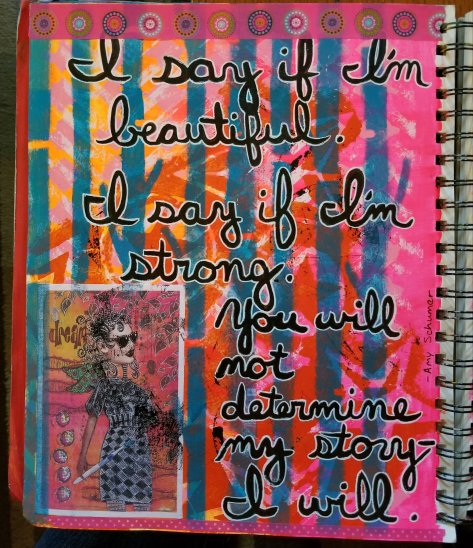 I say if I'm
beautiful.
I say if I'm
strong.
You will
not
determine
my story-
I will.
dream
- Amy Schumer